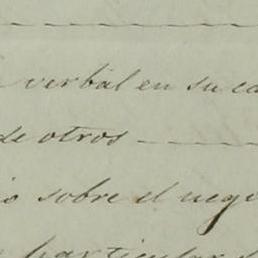 verbal en su ca
de otros
o sobre el nego
particular